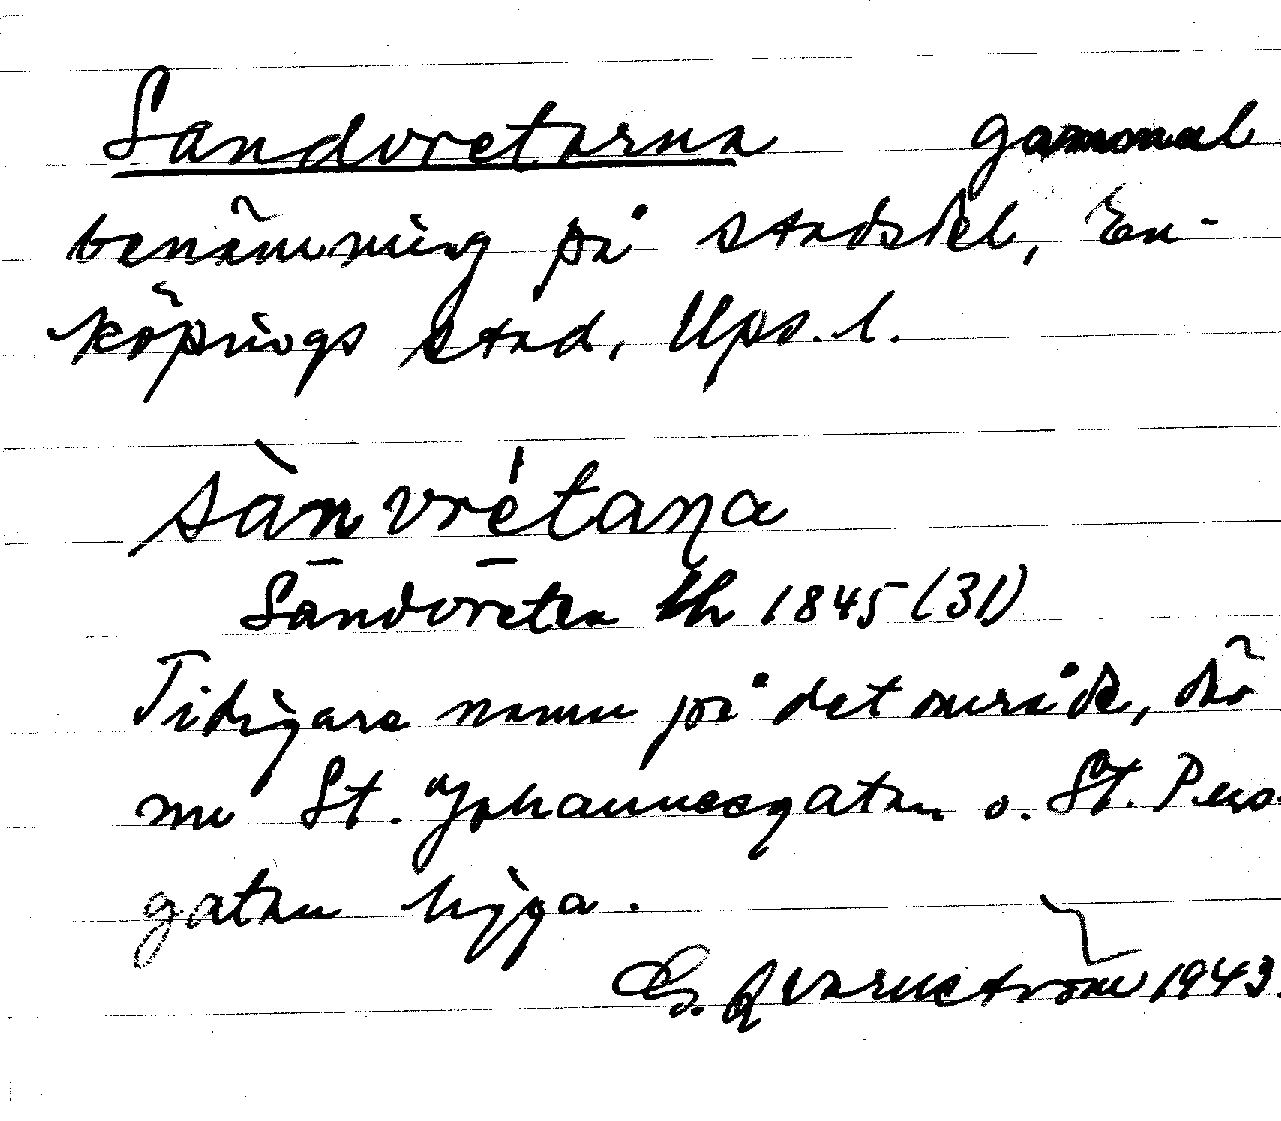 Sandvretarna gammal
benämning på stadsdel, En-
köpings stad, Ups. l.
sàn vrétaṇa
Sandvreten lh 1845 (31)
Tidigare namn på det område, där
nu St. Johannesgatan o. St. Pers
gatan ligga.
G. Qvarnström 1943.